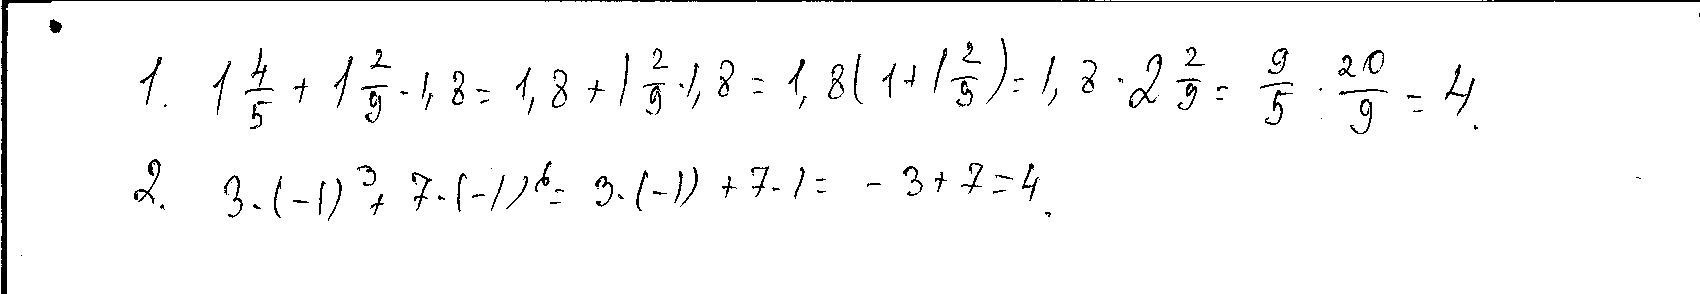 1. 1 4/5 + 1 2/9 · 1,8 = 1,8 + 1 2/9 · 1,8 = 1,8(1 + 1 2/9) = 1,8 · 2 2/9 = 9/5 · 20/9 = 4.
2. 3·(-1)³ + 7·(-1)⁶ = 3·(-1) + 7·1 = -3+7=4.